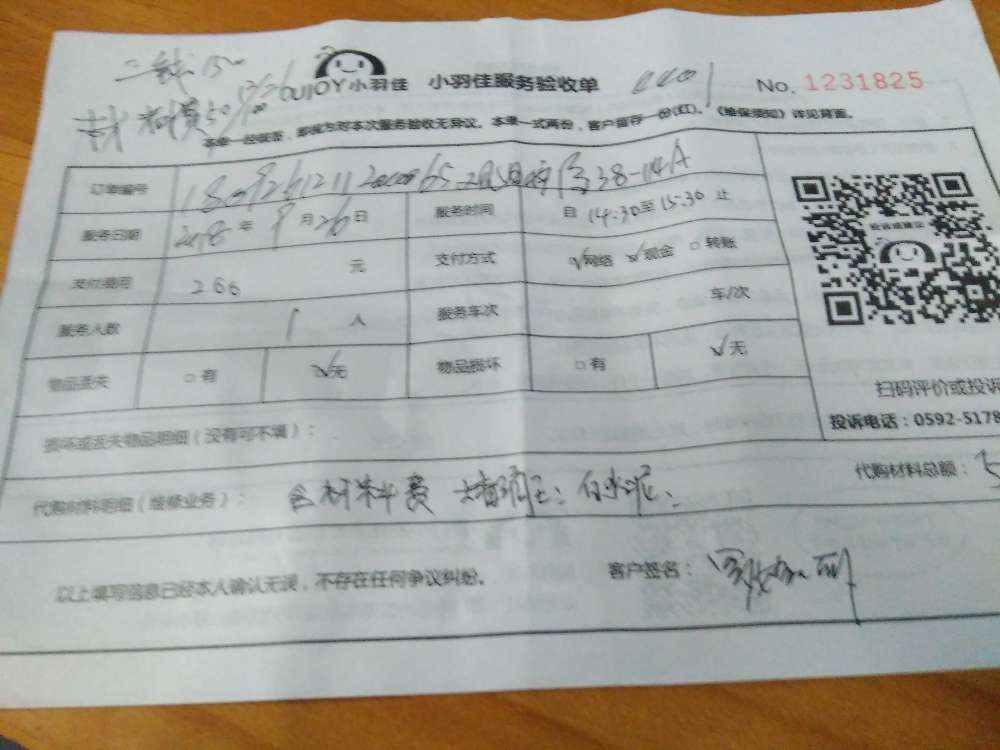 二
OUJOY小羽佳 小羽佳服务验收单 No. 1231825
本单一经签署,即视为对本次服务验收无异议。本单一式两份,客户留存一份(红)。《维保须知》详见背面。
订单编号
服务日期 2018 年 9 月 26 日 服务时间 自 14:30至 15:30 止
支付费用 266 元 支付方式 √网络 √现金 □转账
服务人数 1 人 服务车次 车/次
物品丢失 □有 √无 物品损坏 □有 √无
投诉或建议
扫码评价或投诉
投诉电话:0592-5178
损坏或丢失物品明细(没有可不填):
代购材料明细(维修业务): 含材料费 堵漏王: 白水泥、 代购材料总额: 5
以上填写信息已经本人确认无误,不存在任何争议纠纷。 客户签名: